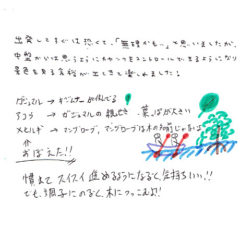 出発してすぐは恐くて、「無理かも。」と思いましたが、
中盤からは思うようにカヤックをコントロールできるようになり
景色を見る余裕が出てきて楽しめました！
ガジュマル →
アコウ → ガジュマルの親せき 葉っぱが大きい
メヒルギ → マングローブ。マングローブは木の名前じゃない
おぼえた!!
慣れて スイスイ進めるようになると、気持ちいい!!
でも、調子にのると、木につっこむよ！